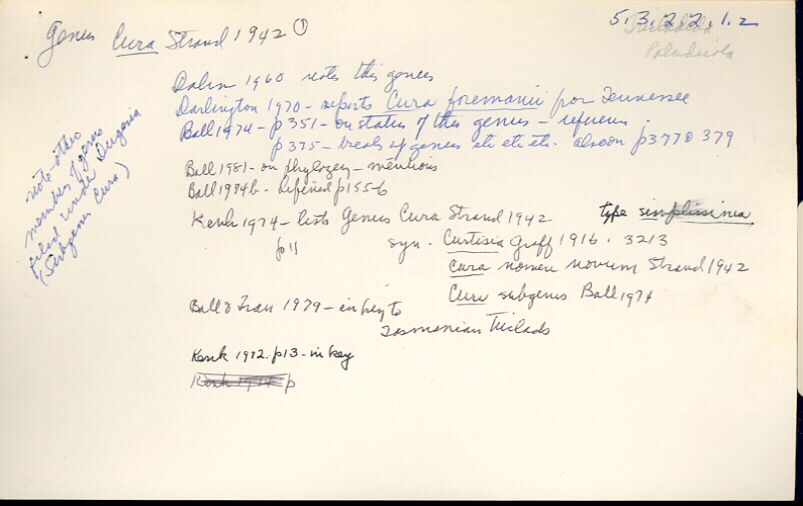 Genus Cura Strand 1942 ①
5.3.2.2.1.2
Tricladida
Paludicola
Dahm 1960 notes this genus
Darlington 1970 - reports Cura foremanii for Tennessee
Ball 1974 - p 351 - on status of this genus -
p 375 - breaks up genus etc etc etc. also on p 377 & 379
note - other
members of genus
filed under Dugesia
(Subgenus Cura)
Ball 1981 - on phylogeny - mentions
Ball 1974b - defined p 155-6
Kenk 1974 - lists Genus Cura Strand 1942 type simplissima
p 11 syn. Curtisia Graff 1916. 3213
Cura nomen novum Strand 1942
Cura subgenus Ball 1974
Ball & Tran 1979 - in key to
Tasmanian Triclads
Kenk 1972. p 13 - in key
Kenk 1974 p